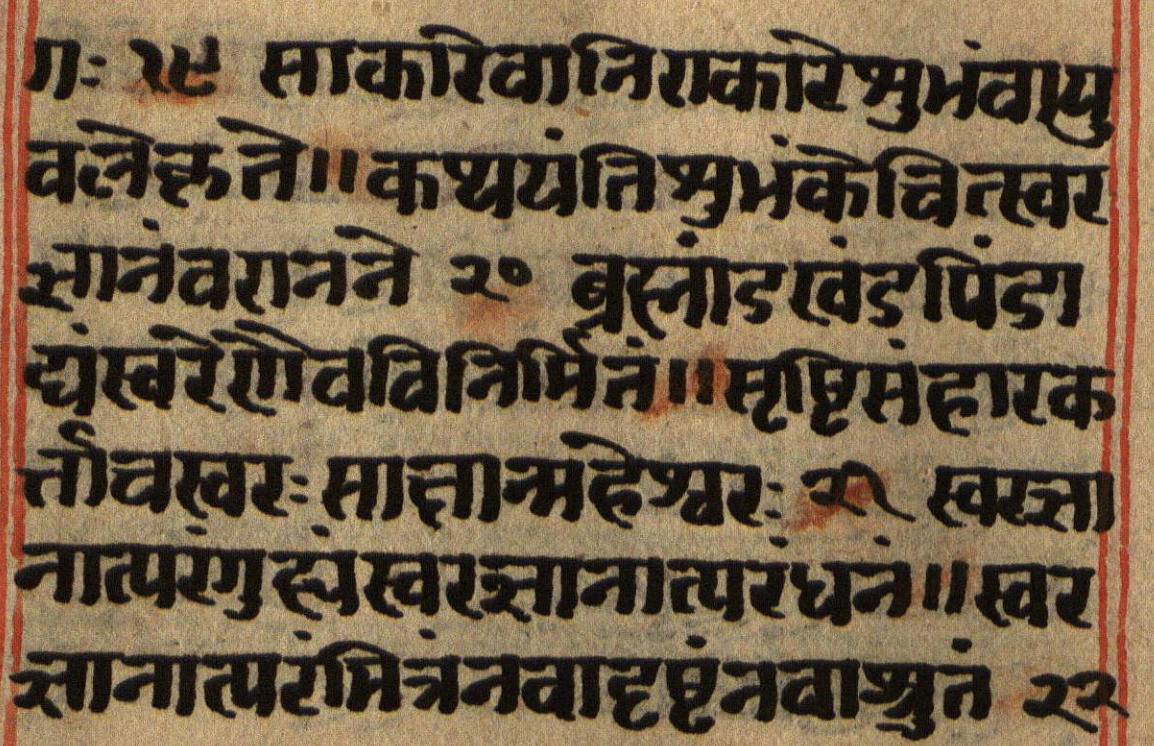 गः १९ साकारेवानिराकारेशुभंवायु
वलेकृते॥कथयंतिशुभंकेचित्स्वर
ज्ञानंवरानने २० ब्रह्मांडखंडपिंडा
द्यंस्वरेणैवविनिर्मितं॥सृष्टिसंहारक
र्त्ताचस्वरःसाक्षान्महेश्वरः २१ स्वरज्ञा
नात्परंगुह्यंस्वरज्ञानात्परंधनं॥स्वर
ज्ञानात्परंमित्रंनवादृष्टंनवाश्रुतं २२